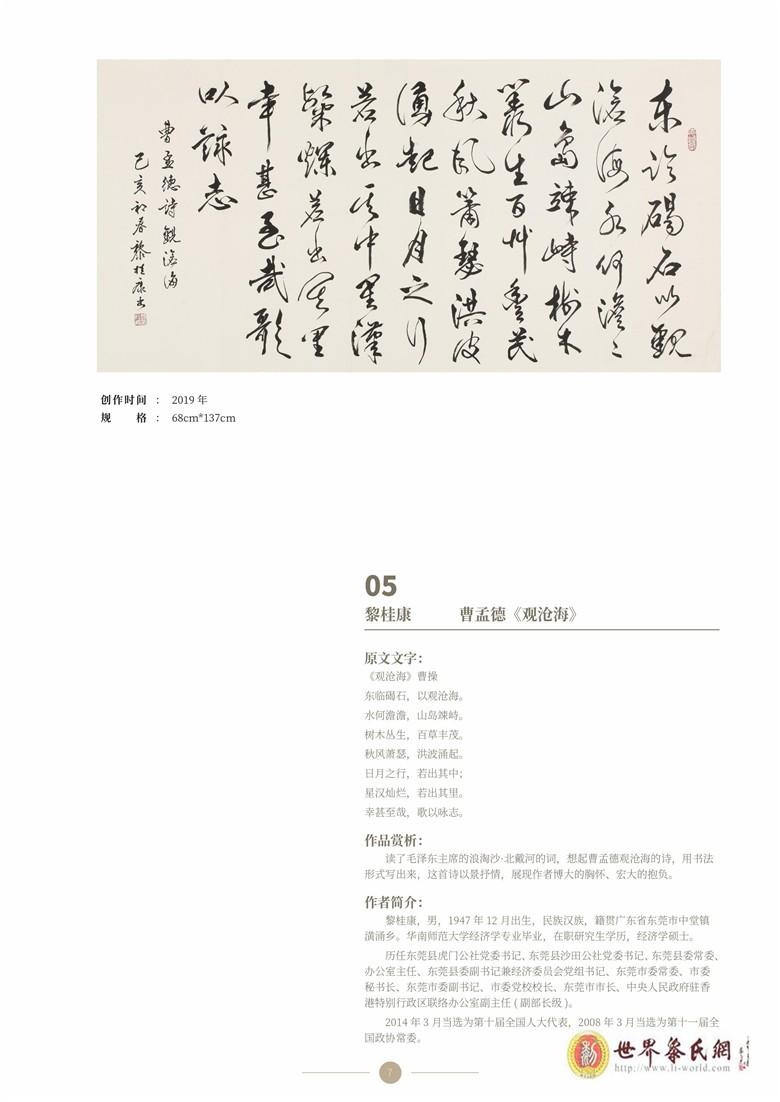 东临碣石以觀
滄海水何澹〻
山島竦峙樹木
叢生百艸豐茂
秋風蕭瑟洪波
涌起日月之行
若出其中星漢
粲爛若出其里
幸甚至哉歌
以詠志
曹孟德詩觀滄海
己亥初春黎桂康书
创作时间 ： 2019 年
规 格 ： 68cm*137cm
05
黎桂康 曹孟德《观沧海》
原文文字：
《观沧海》曹操
东临碣石，以观沧海。
水何澹澹，山岛竦峙。
树木丛生，百草丰茂。
秋风萧瑟，洪波涌起。
日月之行，若出其中；
星汉灿烂，若出其里。
幸甚至哉，歌以咏志。
作品赏析：
读了毛泽东主席的浪淘沙·北戴河的词，想起曹孟德观沧海的诗，用书法
形式写出来，这首诗以景抒情，展现作者博大的胸怀、宏大的抱负。
作者简介：
黎桂康，男，1947 年 12 月出生，民族汉族，籍贯广东省东莞市中堂镇
潢涌乡。华南师范大学经济学专业毕业，在职研究生学历，经济学硕士。
历任东莞县虎门公社党委书记、东莞县沙田公社党委书记、东莞县委常委、
办公室主任、东莞县委副书记兼经济委员会党组书记、东莞市委常委、市委
秘书长、东莞市委副书记、市委党校校长、东莞市市长、中央人民政府驻香
港特别行政区联络办公室副主任 ( 副部长级 )。
2014 年 3 月当选为第十届全国人大代表，2008 年 3 月当选为第十一届全
国政协常委。
7
世界黎氏網
http://www.li-world.com